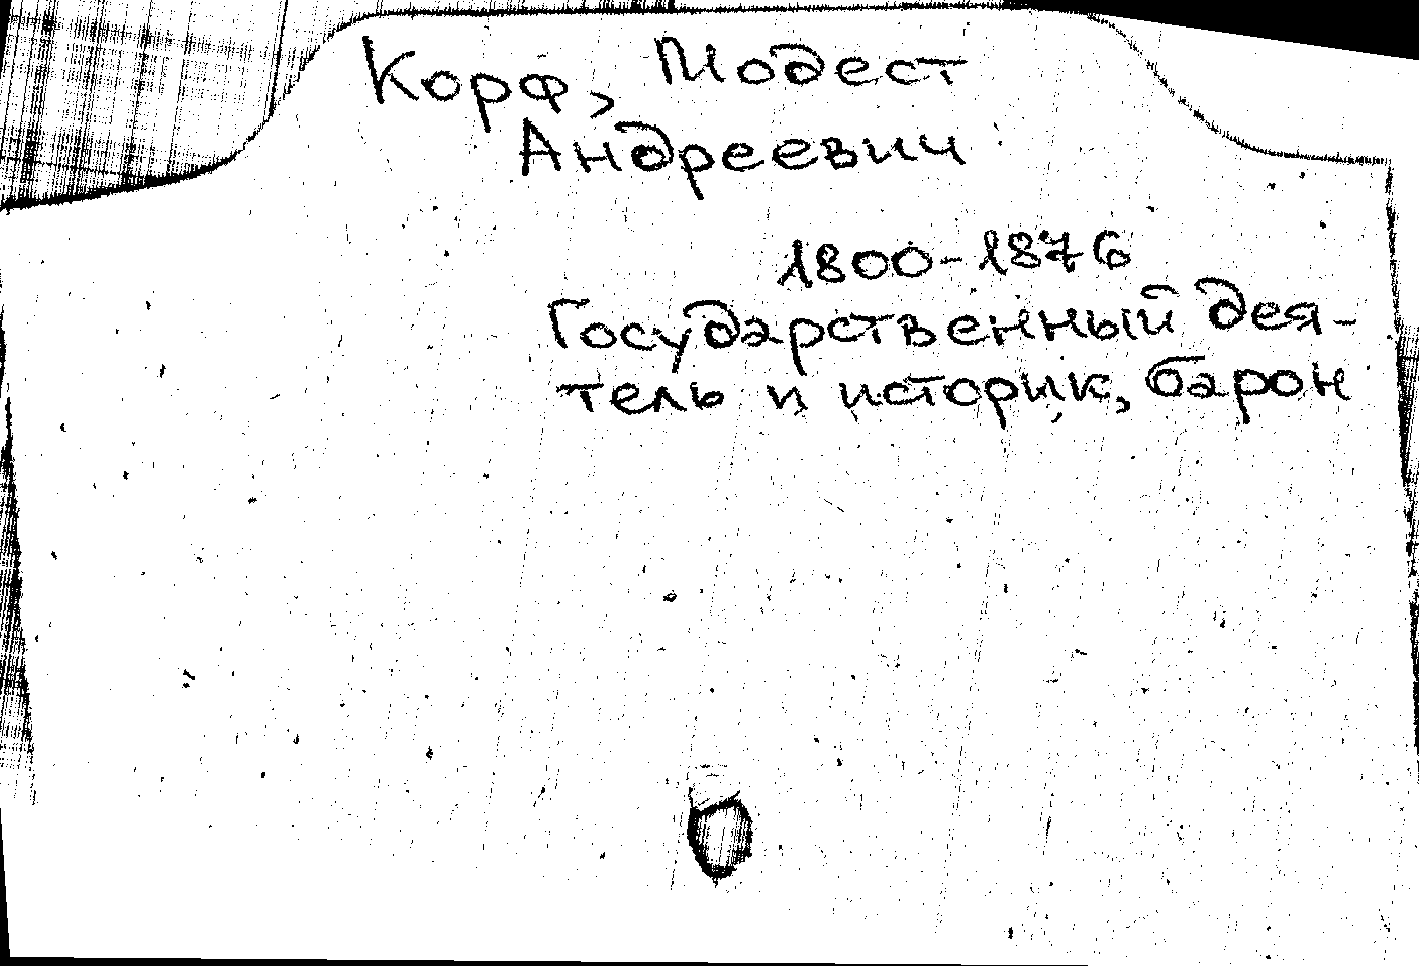 Корф, Модест
Андреевич
1800-1876
Государственный дея-
тель и историк, барон